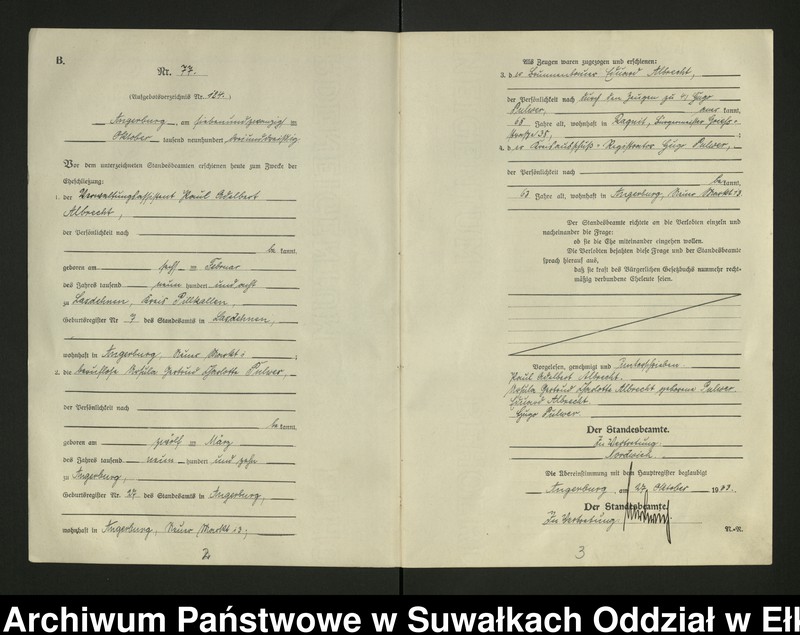 B.
Nr. 77.
(Aufgebotsverzeichnis Nr. 124.)
Angerburg, am siebenundzwanzigsten
Oktober tausend neunhundert dreiunddreißig.
Vor dem unterzeichneten Standesbeamten erschienen heute zum Zwecke der
Eheschließung:
1. der Verwaltungsassistent Paul Adalbert
Albrecht,
der Persönlichkeit nach
be kannt,
geboren am Februar
des Jahres tausend neun hundert und acht
zu Lasdehnen, Kreis Pillkallen,
Geburtsregister Nr 7 des Standesamts in Lasdehnen,
wohnhaft in Angerburg, Neuer Markt ;
2. die berufslose Gertrud Charlotte Pulwer,
der Persönlichkeit nach
be kannt,
geboren am zwölften März
des Jahres tausend neun hundert und zehn
zu Angerburg,
Geburtsregister Nr. 37 des Standesamts in Angerburg,
wohnhaft in Angerburg, Neuer Markt 13;
2
Als Zeugen waren zugezogen und erschienen:
3. der Brunnenbauer Eduard Albrecht,
der Persönlichkeit nach durch den Zeugen zu 4 Hugo
Pulwer, aner kannt,
68 Jahre alt, wohnhaft in Ragnit,
straße 35,
4. der Kreisausschuß-Registrator Hugo Pulwer,
der Persönlichkeit nach
be kannt,
63 Jahre alt, wohnhaft in Angerburg, Neuer Markt 13
Der Standesbeamte richtete an die Verlobten einzeln und
nacheinander die Frage:
ob sie die Ehe miteinander eingehen wollen.
Die Verlobten bejahten diese Frage und der Standesbeamte
sprach hierauf aus,
daß sie kraft des Bürgerlichen Gesetzbuchs nunmehr recht-
mäßig verbundene Eheleute seien.
Vorgelesen, genehmigt und unterschrieben
Paul Adalbert Albrecht.
Gertrud Charlotte Albrecht geborene Pulwer.
Eduard Albrecht.
Hugo Pulwer.
Der Standesbeamte.
In Vertretung
Die Übereinstimmung mit dem Hauptregister beglaubigt
Angerburg, am 27. Oktober 1933.
Der Standesbeamte.
In Vertretung
3
Archiwum Państwowe w Suwałkach Oddział w Ełk